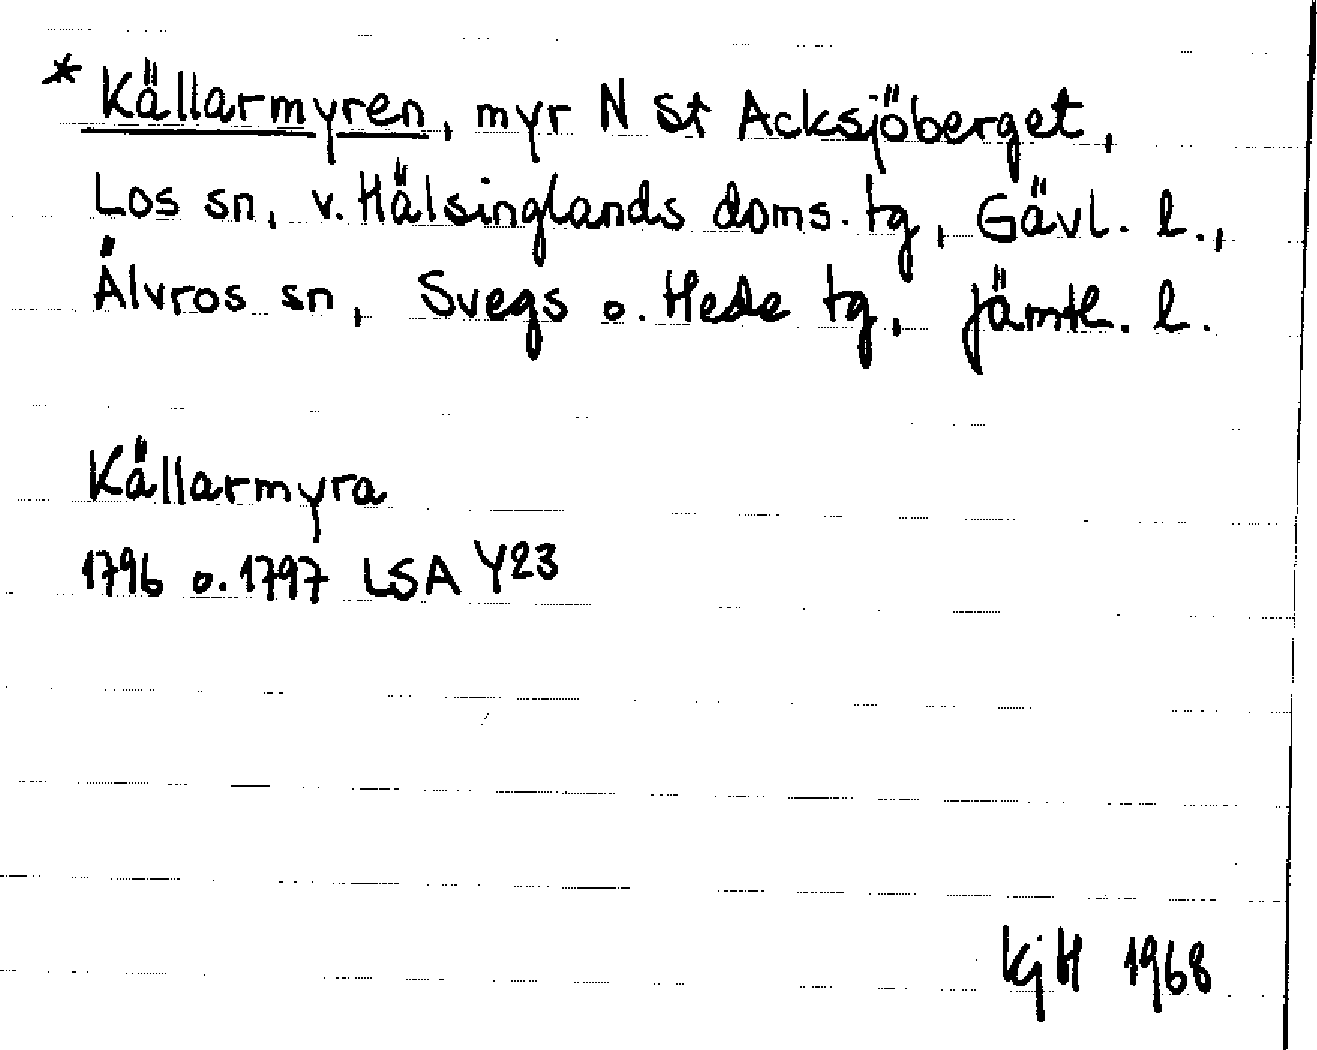 * Källarmyren, myr N St Acksjöberget,
Los sn, v. Hälsinglands doms. tg, Gävl. l.,
Älvros sn, Svegs o. Hede tg, Jämtl. l.
Källarmyra
1796 o. 1797 LSA Y23
KjH 1968